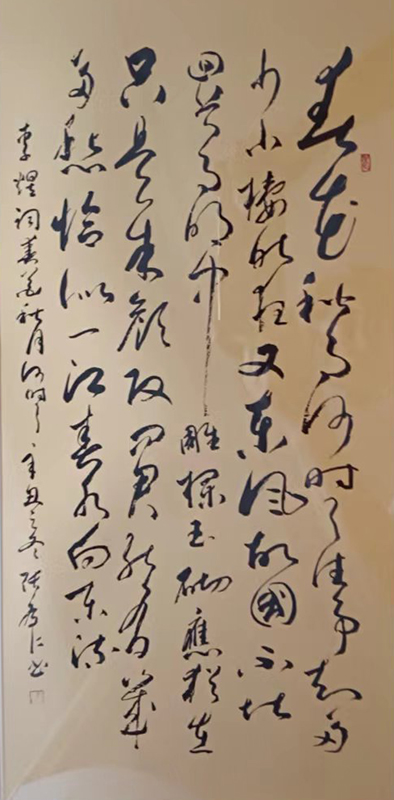 春花秋月何时了往事知多
少小楼昨夜又东风故國不堪
回首月明中雕欄玉砌應猶在
只是朱颜改问君能有幾
多愁恰似一江春水向东流
李煜词春花秋月何时了辛丑之冬张仁书